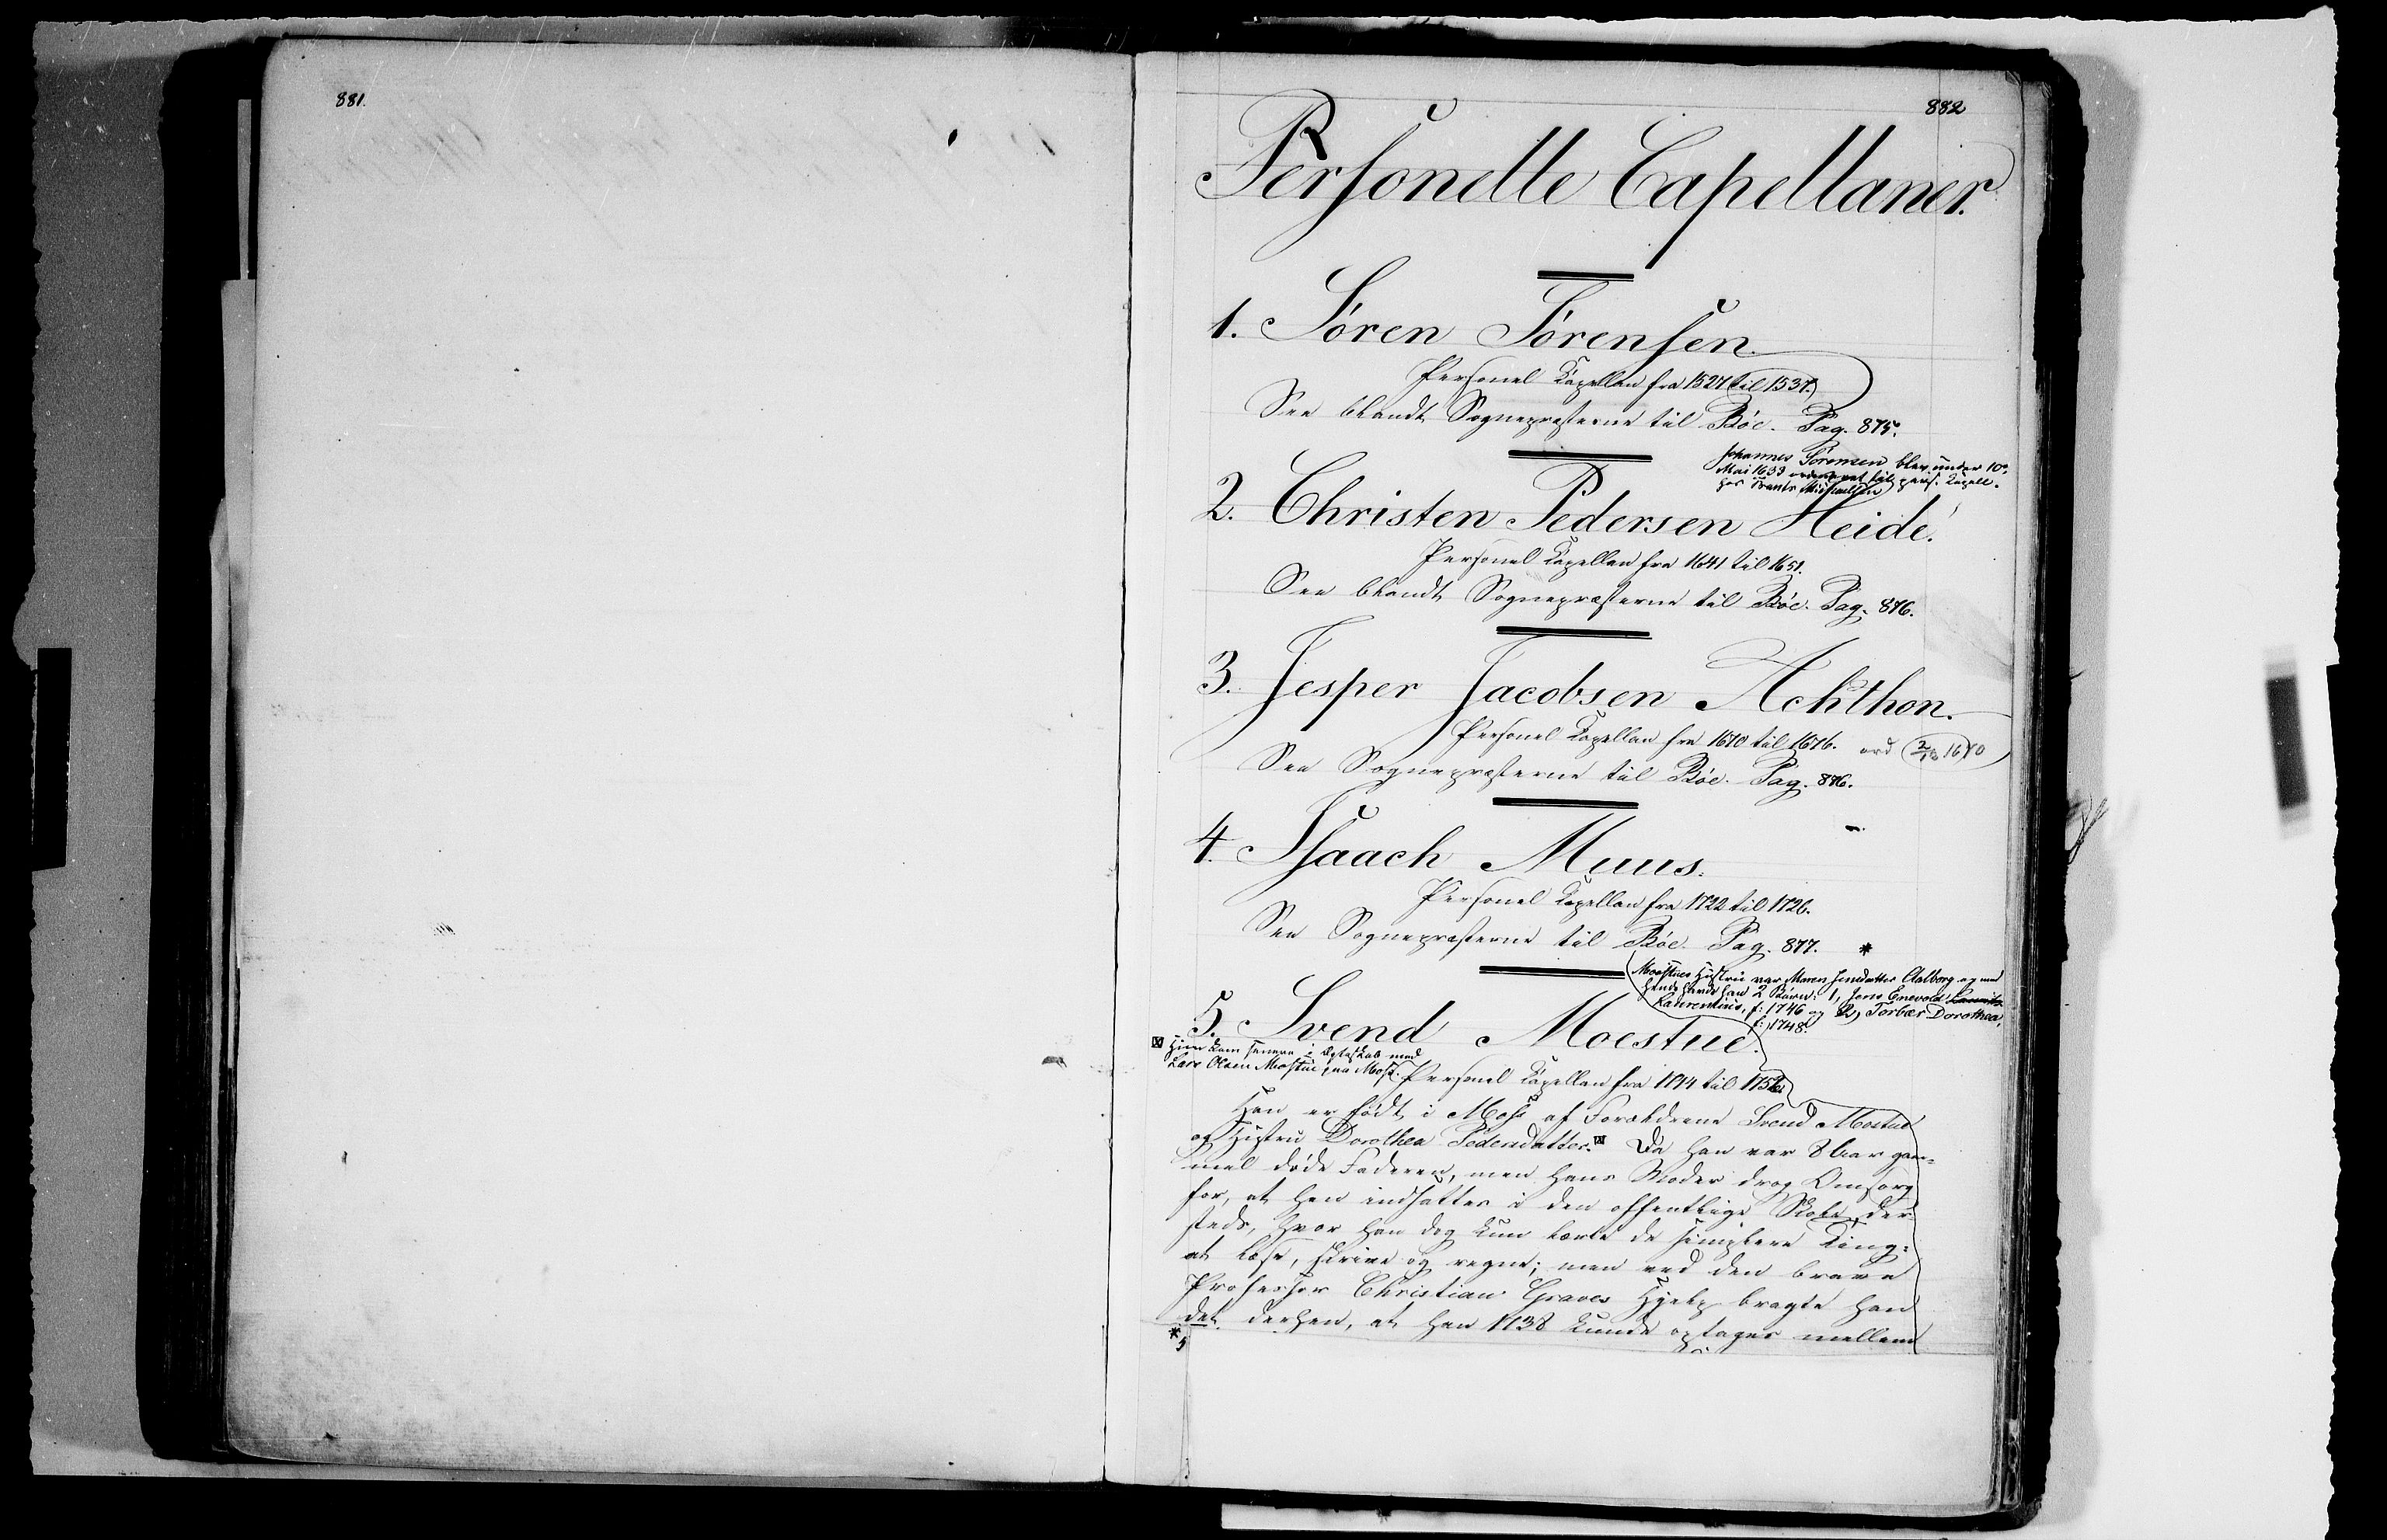 881.
882
Personelle Capellaner.
1. Søren Sørensen.
Personel Kapellan fra 1527 til 1537.
See blandt Sognepræsterne til Böe. Pag. 875.
Johannes Sørensen blev under 10de
Mai 1633 ordineret til pers. Kapell.
hos Frants Michaelsen
2. Christen Pedersen Heide.
Personel Kapellan fra 1641 til 1651.
See blandt Sognepræsterne til Böe. Pag. 876.
3. Jesper Jacobsen Achthon.
Personel Kapellan fra 1670 til 1676. ord 2/10 1670
See Sognepræsterne til Böe. Pag. 876.
4. Isaach Muus.
Personel Kapellan fra 1722 til 1726.
See Sognepræsterne til Böe. Pag. 877. *
Moestues Hustru var Maren Jensdatter Aalborg og med
hende havde han 2 Børn: 1, Jens Enevold
Laurentius, f: 1746 og 2, Torbær Dorothea,
f: 1748.
5. Svend Moestue.
Hun kom senere i Ægteskab med
Lars Olsen Moestue paa Moss. Personel Kapellan fra 1744 til
Han er født i Moss af Forældrene Svend Mostue
og Hustru Dorothea Pedersdatter. Da han var 8 Aar gam-
mel døde Faderen, men hans Moder drog Omsorg
for, at han indsattes i den offentlige Skole der-
steds, hvor han dog kun lærte de simplere Ting:
at læse, skrive og regne; men ved den brave
Professor Christian Graves Hjelp bragte han
det derhen, at han 1738 kunde optages mellem
*
5